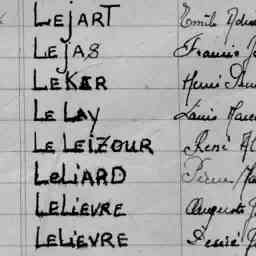 LEJART Emile
LEJAS Francis
LEKER Henri
LE LAY Louis
LE LEIZOUR René
LELIARD Pierre
LELIEVRE Auguste
LELIEVRE Désiré